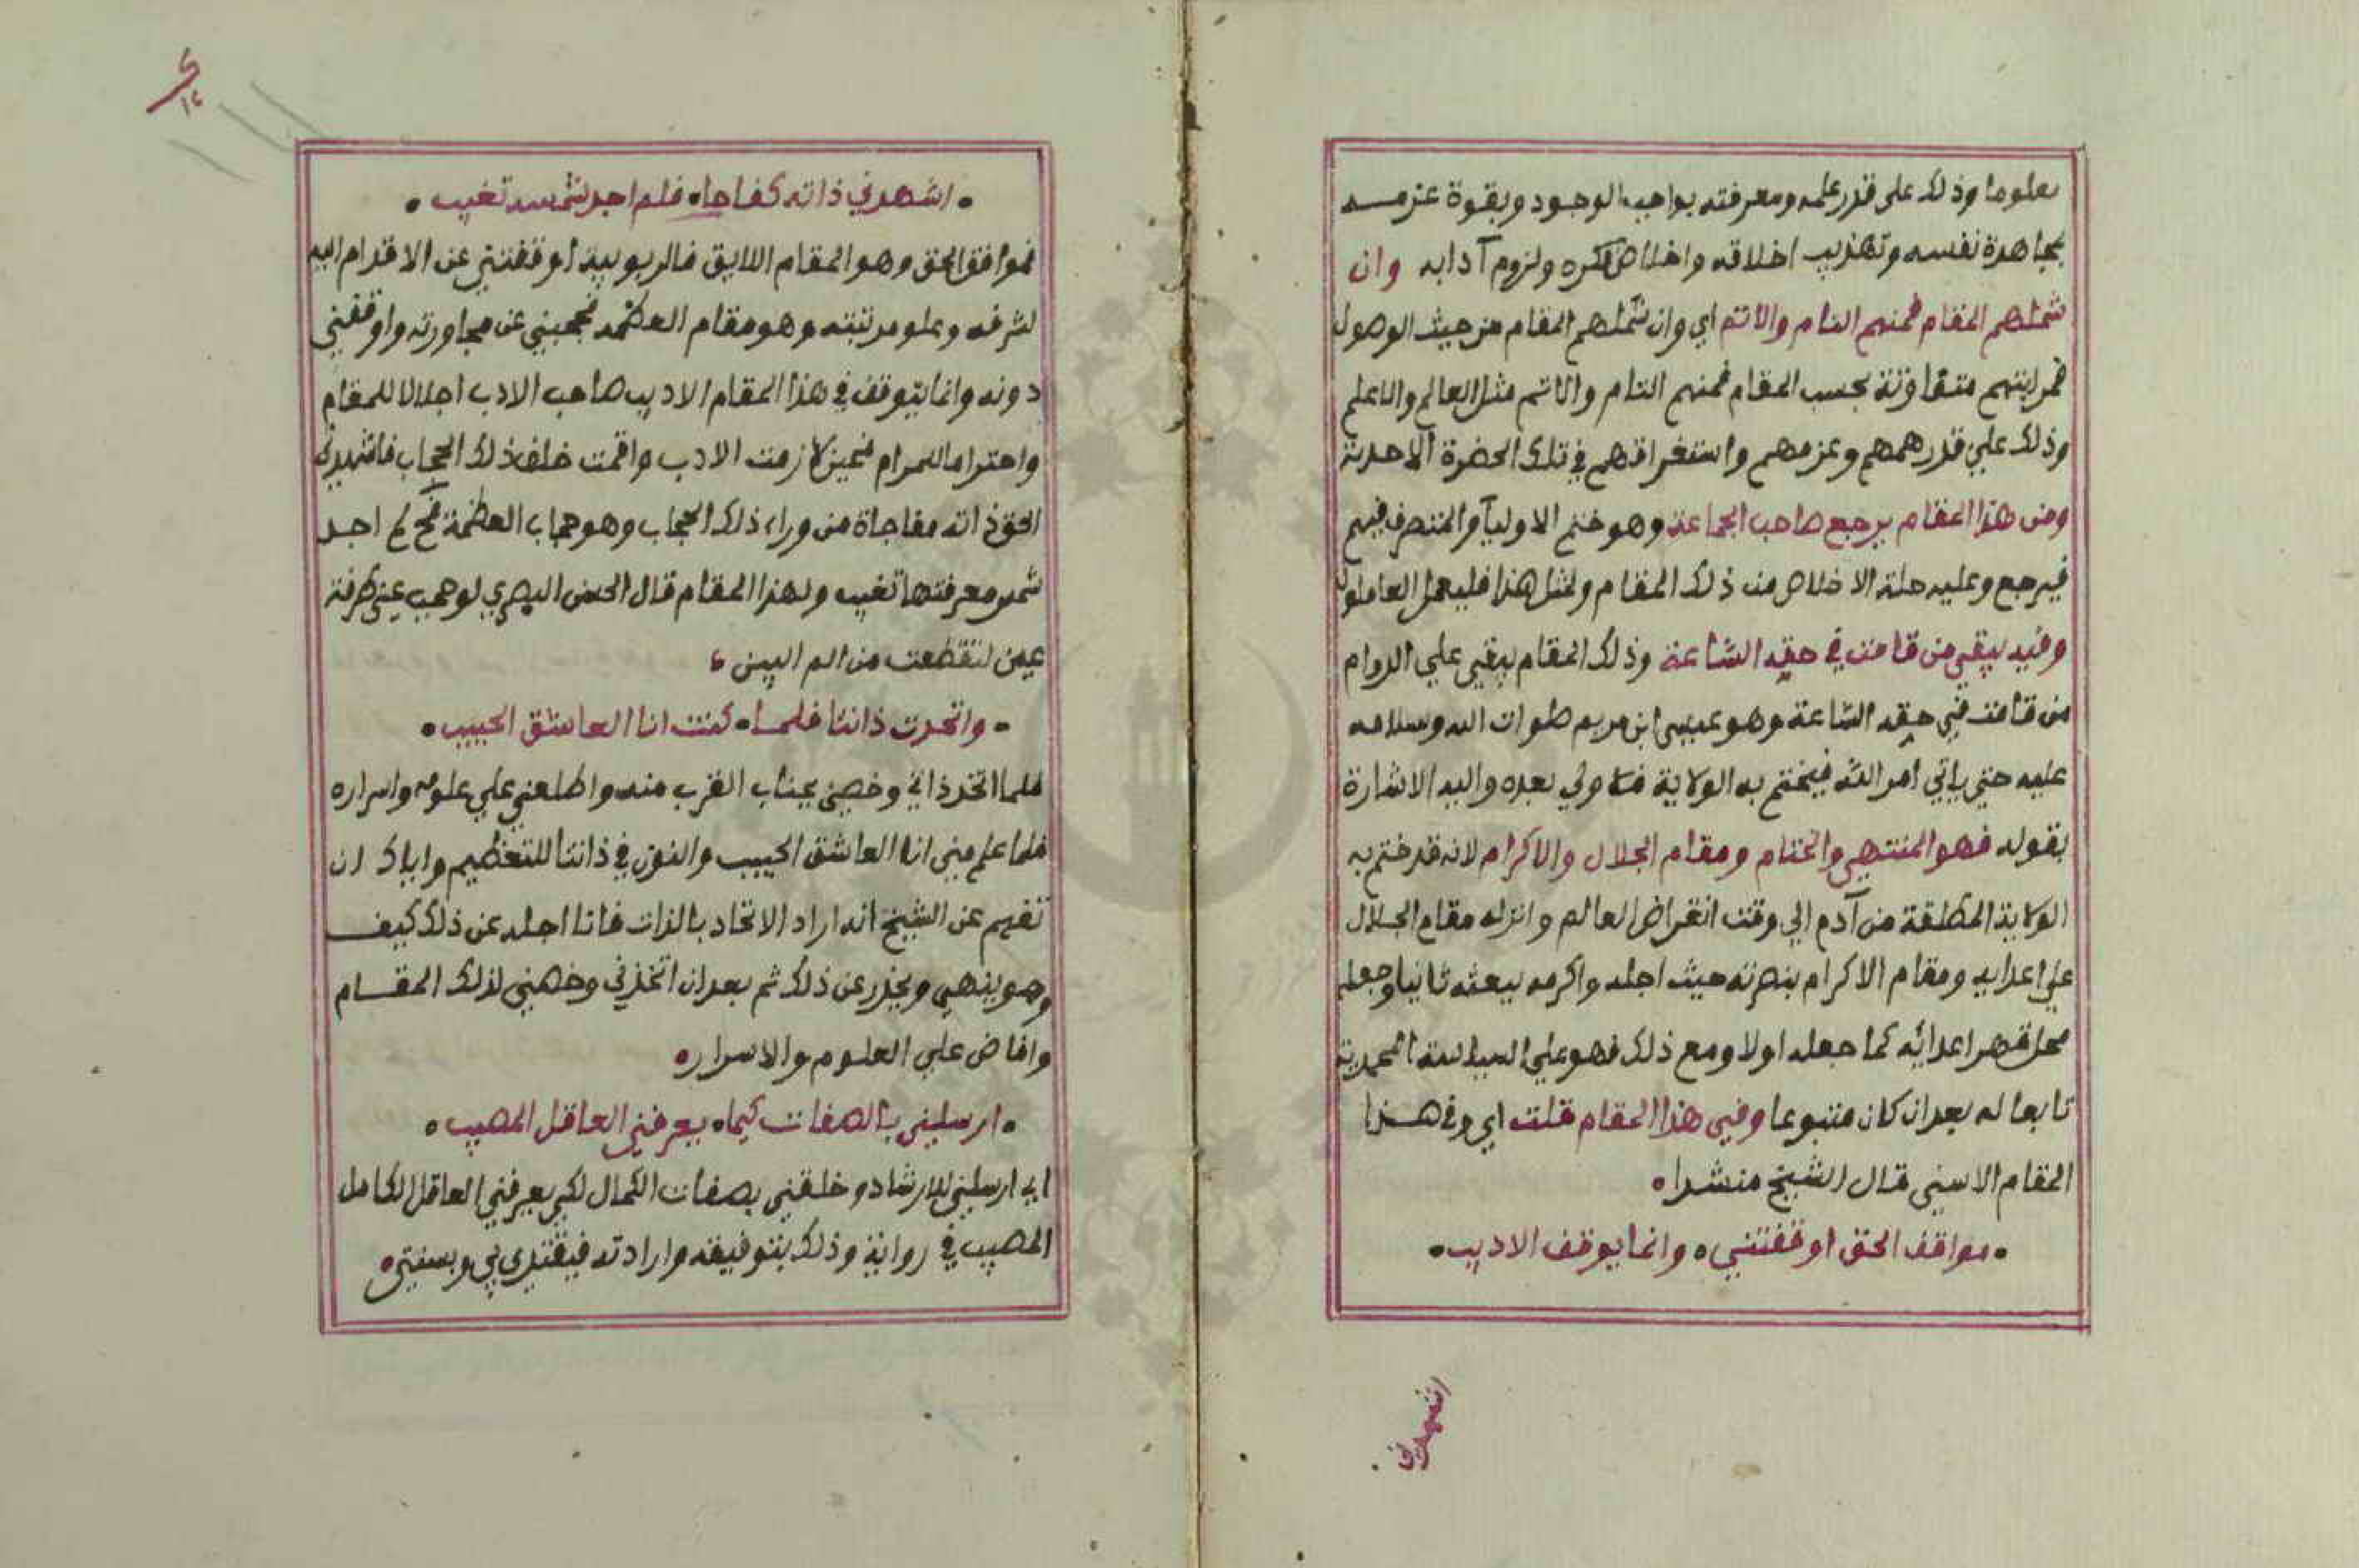 معلوما وذلك على قدر علمه ومعرفته بواجب الوجود وبقوة عزمه
بمجاهدة نفسه وتهذيب اخلاقه واخلاص فكره ولزوم آدابه وان
شملهم المقام فمنهم التام والاتم اي وان شملهم المقام من حيث الوصول
فمراتبهم متفاوتة بحسب المقام فمنهم التام والاتم مثل العالم والاعلم
وذلك علي قدر هممهم وعزمهم واستغراقهم في تلك الحضرة الاحدية
ومن هذا المقام يرجع صاحب الجماعة وهو ختم الاوليآ والمتصرف فيهم
فيرجع وعليه حلة الاخلاص من ذلك المقام ولمثل هذا فليعمل العاملون
وفيه يبقي من قامت في حقه الساعة وذلك المقام يبقي علي الدوام
من قامت في حقه الساعة وهو عيسي ابن مريم صلوات الله وسلامه
عليه حتي ياتي امر الله فيختم به الولاية فلا ولي بعده واليه الاشارة
بقوله فهو المنتهي والختام ومقام الجلال والاكرام لانه قد ختم به
الولاية المطلقة من آدم الي وقت انقراض العالم وانزله مقام الجلال
علي اعدايه ومقام الاكرام بنصرته حيث اجله واكرمه ببعثه ثانيا وجعله
محل قهر اعدائه كما جعله اولا ومع ذلك فهو علي السياسة المحمدية
تابعا له بعد ان كان متبوعا وفي هذا المقام قلت اي وفي هذا
المقام الاسني قال الشيخ منشدا
مواقف الحق اوقفتني وانما يوقف الاديب
اشهدني
اشهدني ذاته كفاحا فلم اجد شمسه تغيب
فمواقف الحق وهو المقام اللايق فالربوبية اوقفتني عن الاقدام اليه
لشرفه وعلو مرتبته وهو مقام العظمه فحجبني عن مجاورته واوقفني
دونه وانما يتوقف في هذا المقام الاديب صاحب الادب اجلالا للمقام
واحتراما للمرام فحين لازمت الادب واقمت خلف ذلك الحجاب فاشهدني
الحق ذاته مفاجاة من وراء ذلك الحجاب وهو حجاب العظمة فح لم اجد
شمس معرفتها تغيب ولهذا المقام قال الحسن البصري لو حجب عني طرفة
عين لتقطعت من الم البين
واتحدت ذاتنا فلما كنت انا العاشق الحبيب
فلما اتحد ذاتي وخصني بجناب القرب منه واطلعني علي علومه واسراره
فلما علم مني انا العاشق الحبيب والنون في ذاتنا للتعظيم واياك ان
تفهم عن الشيخ انه اراد الاتحاد بالذات فانا اجله عن ذلك كيف
وهو ينهي ويحذر عن ذلك ثم بعد ان اتخذني وخصني لذلك المقام
وافاض علي العلوم والاسرار
ارسلني بالصفات كيما يعرفني العاقل المصيب
اي ارسلني للارشاد وخلقني بصفات الكمال لكي يعرفني العاقل الكامل
المصيب في روايته وذلك بتوفيقه وارادته فيقتدي بي وبسنتي